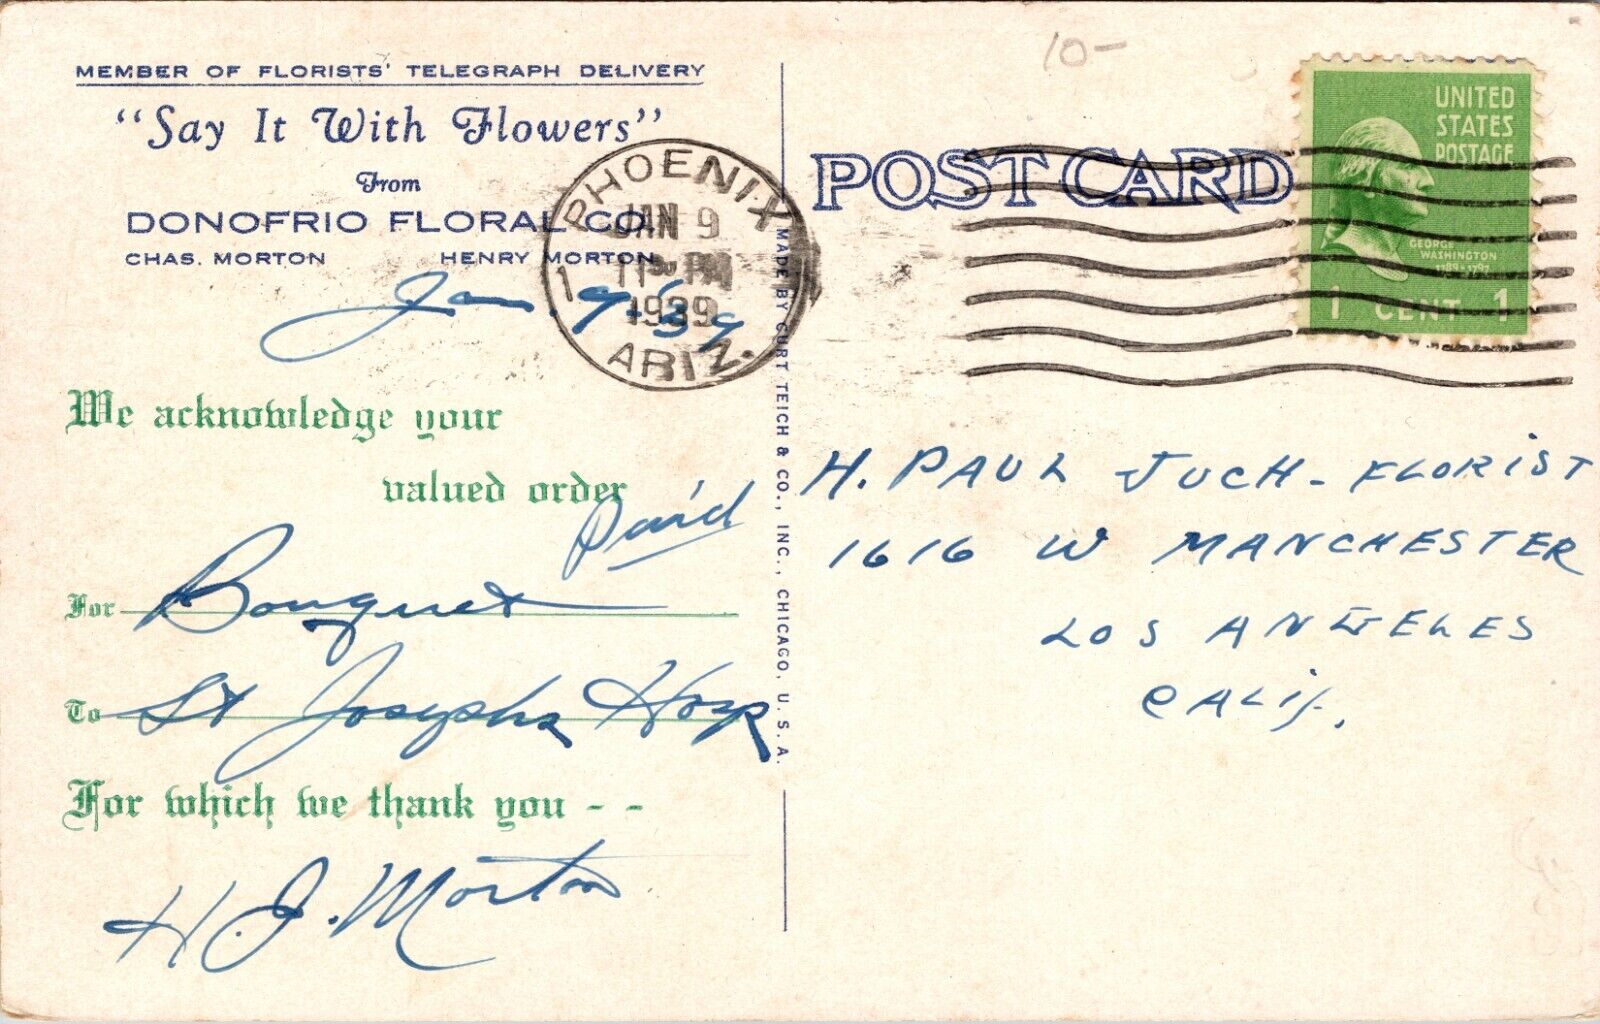 MEMBER OF FLORISTS' TELEGRAPH DELIVERY
"Say It With Flowers"
From
DONOFRIO FLORAL CO.
CHAS. MORTON HENRY MORTON
Jan. 9-'39
We acknowledge your
valued order
Paid
For Bouquet
To St Josephs Hosp
For which we thank you - -
H. J. Morton
PHOENIX
JAN 9
11 30 PM
1939
ARIZ.
1
MADE BY CURT TEICH & CO., INC., CHICAGO, U. S. A.
10-
POST CARD
UNITED
STATES
POSTAGE
GEORGE
WASHINGTON
1789-1797
1 CENT 1
H. PAUL JUCH - FLORIST
1616 W MANCHESTER
LOS ANGELES
CALIF.